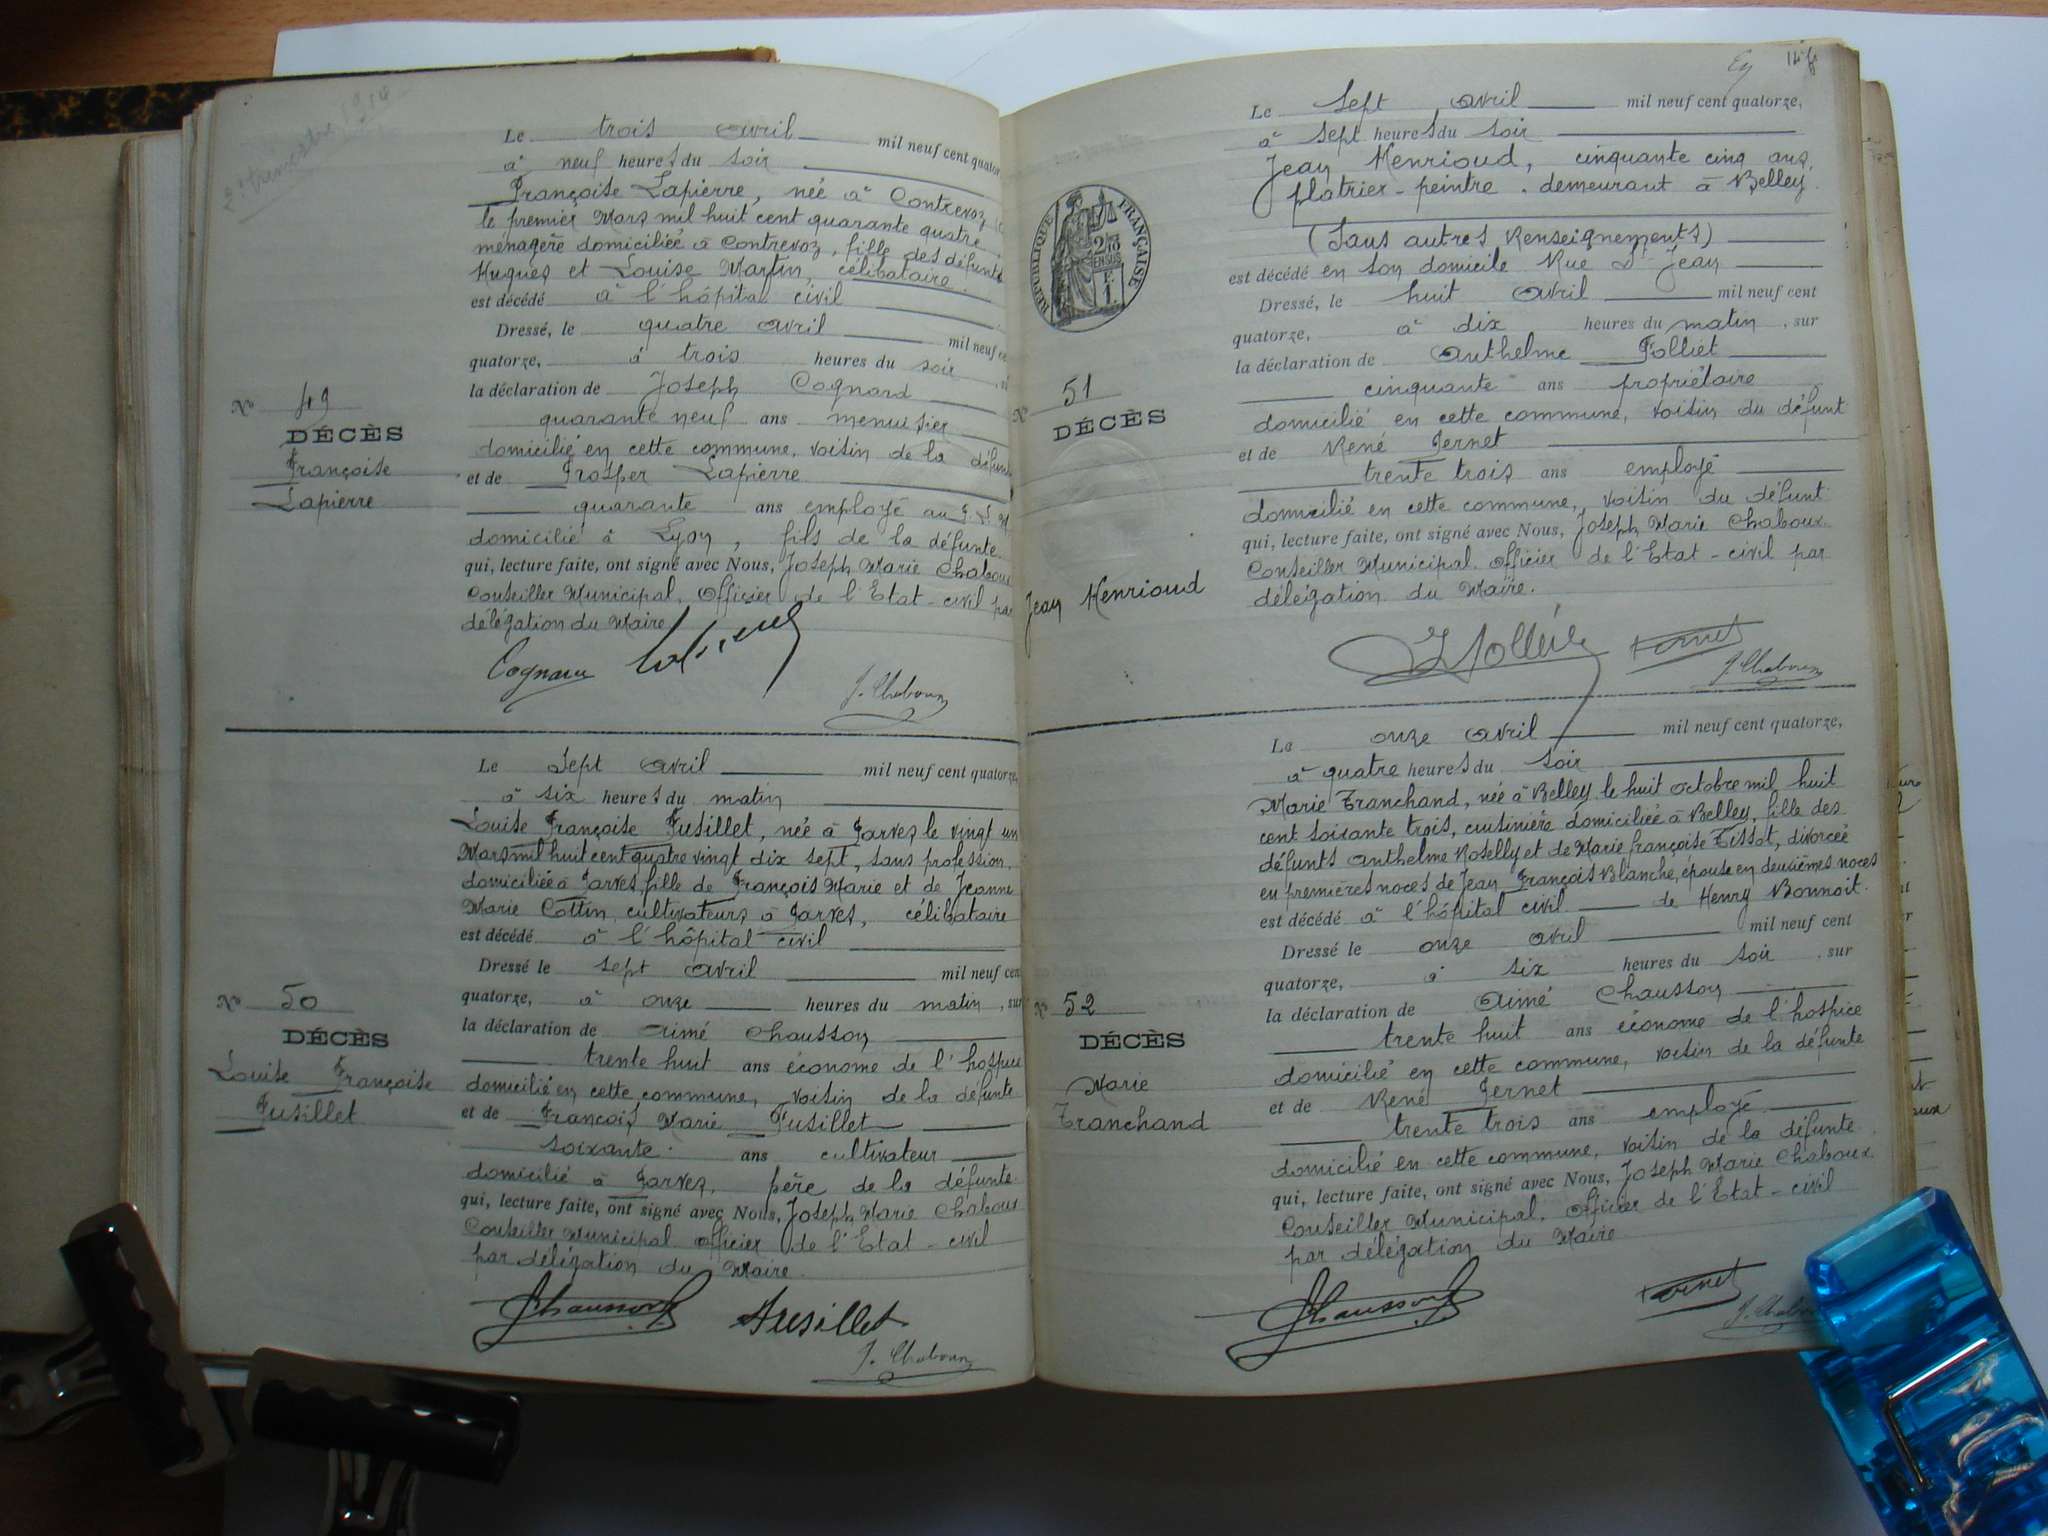 2e trimestre 1914
Le trois avril mil neuf cent quator
à neuf heures du soir
Françoise Lapierre, née à Contrevoz
le premier Mars mil huit cent quarante quatre
ménagère domiciliée à Contrevoz, fille des défunts
Hugues et Louise Martin, célibataire.
est décédé à l'hôpital civil
Dressé, le quatre avril mil neuf ce
quatorze, à trois heures du soir
la déclaration de Joseph Cognard
quarante neuf ans menuisier
domicilié en cette commune, voisin de la défun
et de Prosper Lapierre
quarante ans employé au P. L. M.
domicilié à Lyon, fils de la défunte.
qui, lecture faite, ont signé avec Nous, Joseph Marie Chaboux
Conseiller Municipal. Officier de l'Etat-civil par
délégation du Maire
No 49
DÉCÈS
Françoise
Lapierre
Cognard
J. Chaboux
Le Sept avril mil neuf cent quatorze,
à six heures du matin
Louise Françoise Fusillet, née à Parves le vingt un
Mars mil huit cent quatre vingt dix sept, sans profession.
domiciliée à Parves, fille de François Marie et de Jeanne
Marie Cottin, cultivateurs à Parves, célibataire
est décédé à l'hôpital civil
Dressé le sept avril mil neuf cen
quatorze, à onze heures du matin, sur
la déclaration de Aimé Chausson
trente huit ans économe de l'hospice
domicilié en cette commune, voisin de la défunte
et de François Marie Fusillet
soixante ans cultivateur
domicilié à Parves, père de la défunte.
qui, lecture faite, ont signé avec Nous, Joseph Marie Chaboux
Conseiller Municipal. Officier de l'Etat-civil
par délégation du Maire.
No 50
DÉCÈS
Louise Françoise
Fusillet
Chausson Fusillet
J. Chaboux
Le Sept avril mil neuf cent quatorze,
à sept heures du soir
Jean Henrioud, cinquante cinq ans,
platrier-peintre. demeurant à Belley.
(Sans autres Renseignements)
est décédé en son domicile Rue St Jean
Dressé, le huit avril mil neuf cent
quatorze, à dix heures du matin, sur
la déclaration de Anthelme Folliet
cinquante ans propriétaire
domicilié en cette commune, voisin du défunt
et de René Fernet
trente trois ans employé
domicilié en cette commune, voisin du défunt
qui, lecture faite, ont signé avec Nous, Joseph Marie Chaboux.
Conseiller Municipal. Officier de l'Etat-civil par
délégation du Maire.
RÉPUBLIQUE FRANÇAISE
No 51
DÉCÈS
Jean Henrioud
Folliet Fernet
J. Chaboux
Le onze avril mil neuf cent quatorze,
à quatre heures du soir
Marie Tranchand, née à Belley le huit octobre mil huit
cent soixante trois, cuisinière domiciliée à Belley, fille des
défunts Anthelme Roselly et de Marie françoise Tissot, divorcée
en premières noces de Jean François Blanche, épouse en deuxièmes noces
est décédé à l'hôpital civil de Henry Bonnoit.
Dressé le onze avril mil neuf cent
quatorze, à six heures du soir, sur
la déclaration de Aimé Chausson
trente huit ans économe de l'hospice
domicilié en cette commune, voisin de la défunte
et de René Fernet
trente trois ans employé
domicilié en cette commune, voisin de la défunte.
qui, lecture faite, ont signé avec Nous, Joseph Marie Chaboux
Conseiller Municipal. Officier de l'Etat-civil
par délégation du Maire
No 52
DÉCÈS
Marie
Tranchand
Chausson Fernet
J. Chaboux